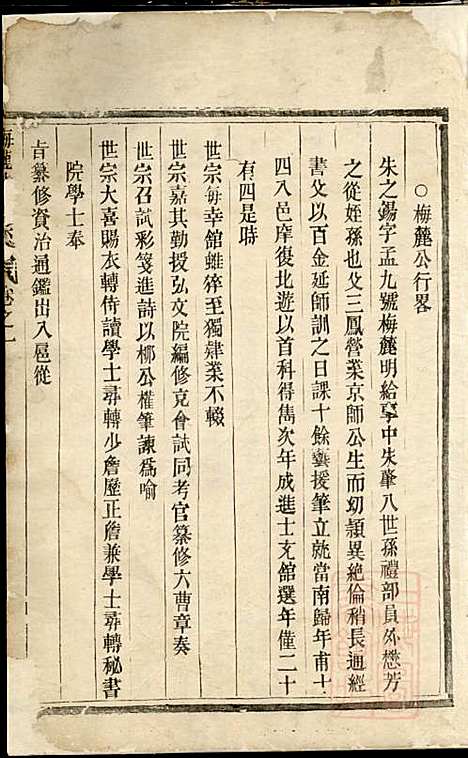 ○梅麓公行畧
朱之錫字孟九號梅麓明給事中朱肇八世孫禮部員外懋芳
之從姪孫也父三鳳營業京師公生而幼頴異絶倫稍長通經
書父以百金延師訓之日課十餘藝援筆立就當南歸年甫十
四入邑庠復北遊以首科得雋次年成進士文館選年僅二十
有四是時
世宗每幸館雖猝至獨肄業不輟
世宗嘉其勤授弘文院編修克會試同考官纂修六曹章奏
世宗召試彩箋進詩以栁公權筆諫爲喻
世宗大喜賜衣轉侍讀學士尋轉少詹歷正詹兼學士尋轉秘書
院學士奉
旨纂修資治通鑑出入扈從
梅麓 卷之一